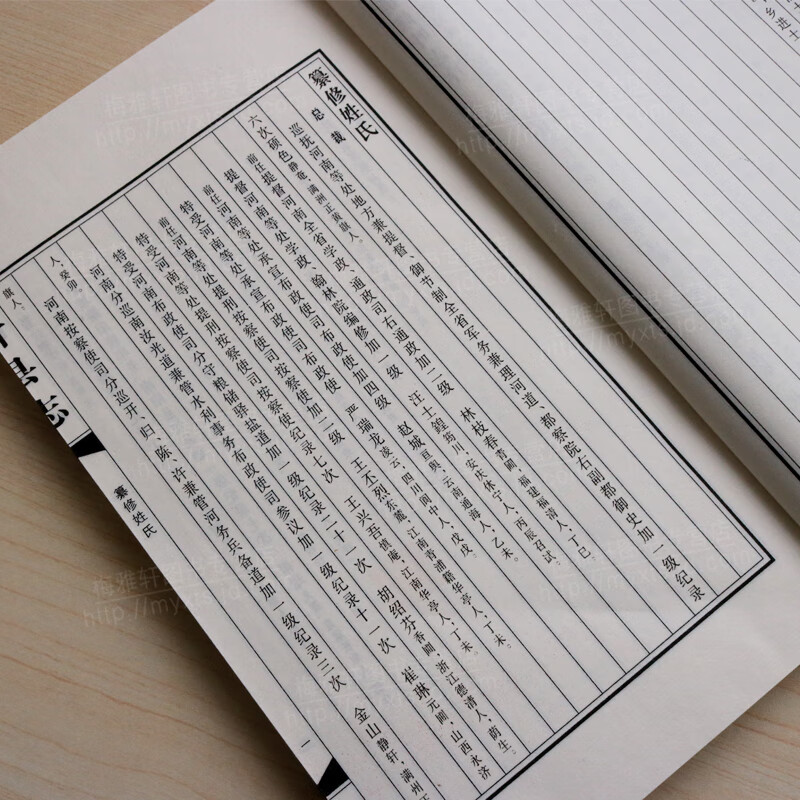 乡进士
纂修姓氏
总裁
巡抚河南等处地方兼提督、御节制全省军务兼理河道、都察院右副都御史加一级纪录
六次硕色静菴,满洲正黄旗人。
前任提督河南全省学政、通政司右通政加一级 林枝春青圃,福建福清人,丁巳。
提督河南等处学政、翰林院编修加一级 汪士鍠筠川,安庆休宁人,丙辰召试。
前任河南等处承宣布政使司布政使加四级 赵城亘舆,云南通海人,乙未。
特受河南等处承宣布政使司布政使 严瑞龙凌云,四川阆中人,戊戌。
前任河南等处提刑按察使司按察使加二级 王丕烈东麓,江南青浦籍华亭人,丁未。
特受河南等处提刑按察使司按察使纪录七次 王兴吾慎庵,江南华亭人,丁未。
特受河南布政使司分守粮储驿盐道加一级纪录二十一次 胡绍芬香圃,浙江德清人,荫生。
河南分巡南汝光道兼管水利事务布政使司参议加一级纪录十一次 崔琳元圃,山西永济
人,癸卯。
河南按察使司分巡开、归、陈、许兼管河务兵备道加一级纪录三次 金山静轩,满州
旗人。
县志
纂修姓氏
一
梅雅轩图书专营店